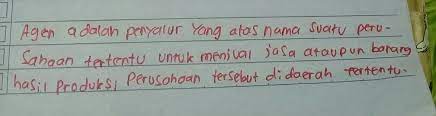 Agen adalah penyalur yang atas nama suatu peru-
sahaan tertentu untuk menjual jasa ataupun barang
hasil produksi perusahaan tersebut di daerah tertentu.